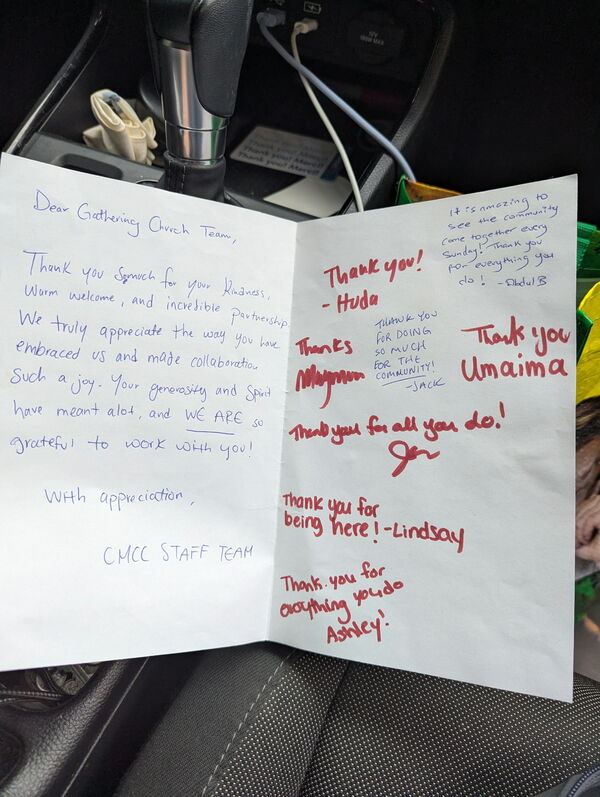 Dear Gathering Church Team,
Thank you so much for your kindness,
warm welcome, and incredible partnership.
We truly appreciate the way you have
embraced us and made collaboration
such a joy. Your generosity and spirit
have meant alot, and WE ARE so
grateful to work with you!
With appreciation,
CMCC STAFF TEAM
It is amazing to
see the community
come together every
Sunday! Thank you
for everything you
do! - Abdul B
Thank you!
- Huda
THANK YOU
FOR DOING
SO MUCH
FOR THE
COMMUNITY!
- JACK
Thanks
Thank you
Umaima
Thank you for all you do!
Jen
Thank you for
being here! - Lindsay
Thank you for
everything you do
Ashley!
Thank you! Merci!
Thank you! Merci!